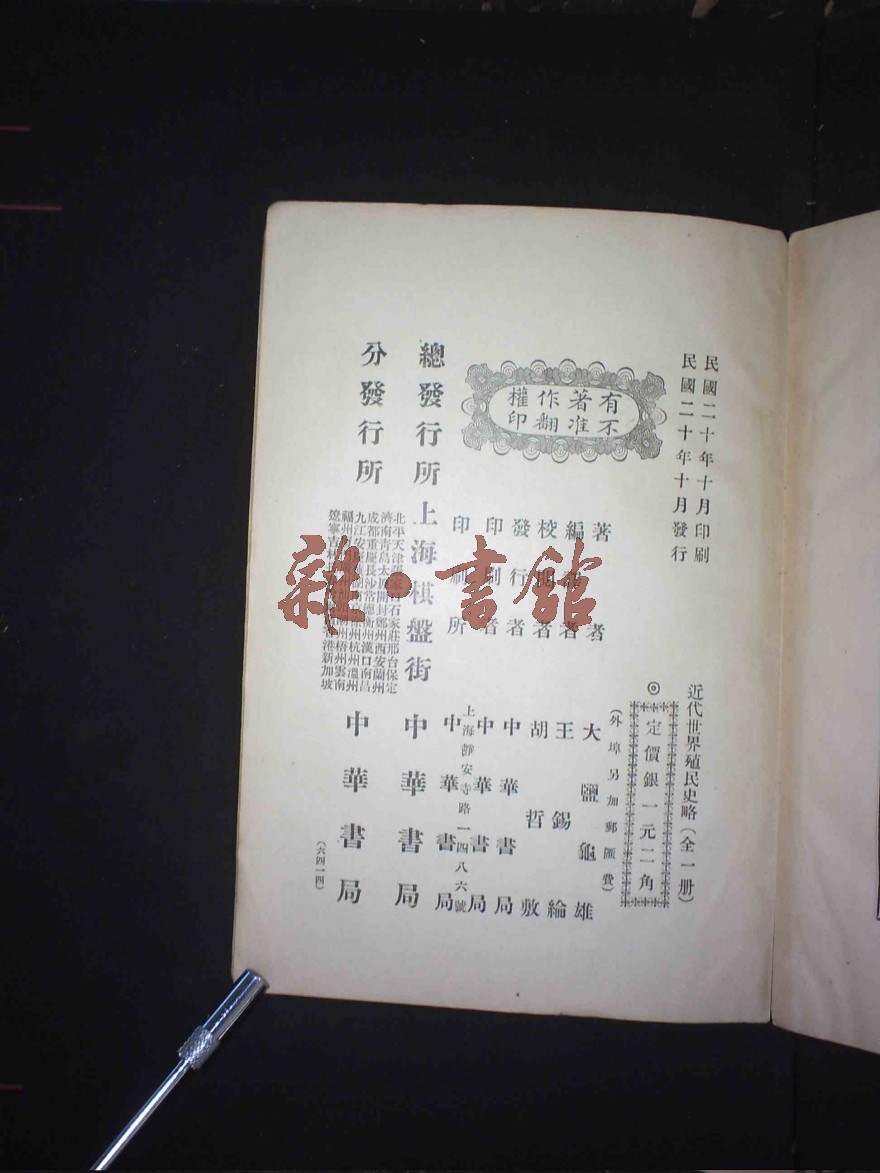 民國二十年十月印刷
民國二十年十月發行
有著作權
不准翻印
近代世界殖民史略(全一册)
◎定價銀一元二角
(外埠另加郵匯費)
著者 大鹽龜雄
編 者 王錫綸
校閱者 胡哲敷
發行者 中華書局
印刷者 中華書局
上海靜安寺路一四八六號
印刷所 中華書局
總發行所 上海棋盤街 中華書局
分發行所
北平天津 家 石家莊邢台保定
濟南青島太原開封鄭州西安蘭州
成都重慶長沙常德衡州漢口南昌
九江安 南 州杭州溫州
福州 州 州梧州雲南
遼寧吉林 港新加坡
中華書局
(六四一四)
雜·書館